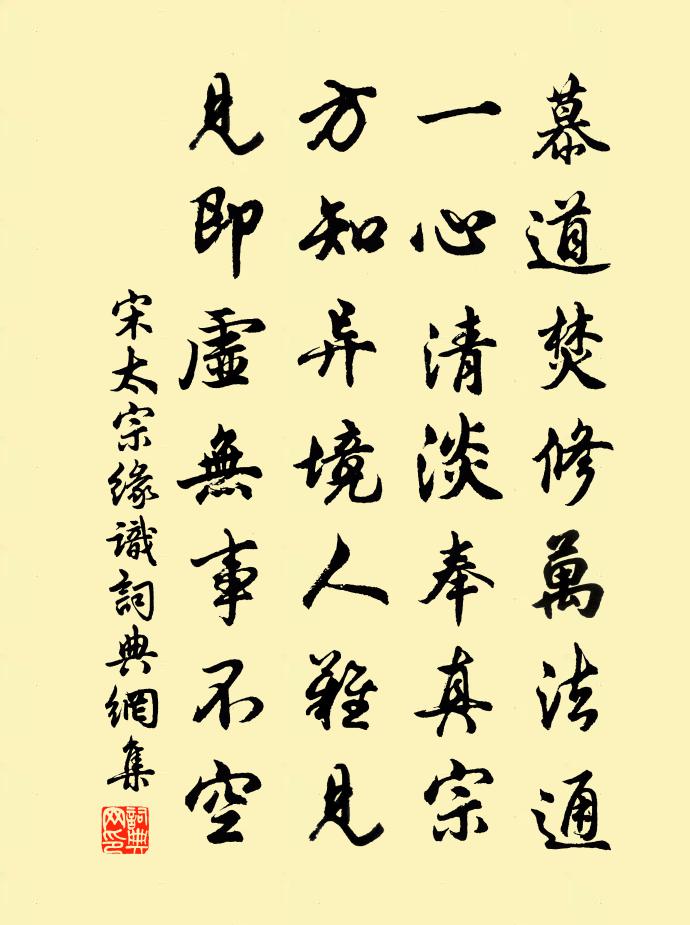 慕道焚修萬法通
一心清淡奉真宗
方知异境人難見
見即虛無事不空
宋太宗緣識詞典網集
詞典网印